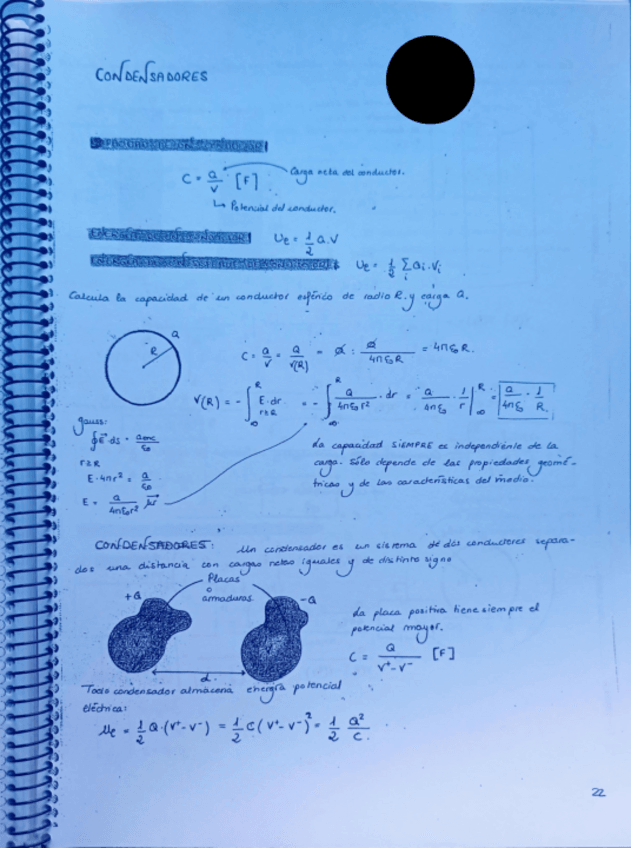 CONDENSADORES
C = Q/V [F] Carga neta del conductor.
↳ Potencial del conductor.
Ue = 1/2 Q.V
Ue = 1/2 ∑i Qi.Vi
Calcula la capacidad de un conductor esférico de radio R. y carga Q.
Q
R
C = Q/V = Q/V(R) = Q : Q/4πε0R = 4πε0R.
V(R) = - ∫∞^R E.dr r≥R = - ∫∞^R Q/4πε0r² . dr = Q/4πε0 . 1/r |∞^R = Q/4πε0 . 1/R.
gauss:
∮E.ds = Qenc/ε0
r≥R
E.4πr² = Q/ε0
E = Q/4πε0r² ur
La capacidad SIEMPRE es independiente de la
carga. Sólo depende de las propiedades geomé-
tricas y de las características del medio.
CONDENSADORES: Un condensador es un sistema de dos conductores separa-
dos una distancia con cargas netas iguales y de distinto signo
Placas
o
armaduras.
+Q
-Q
d.
La placa positiva tiene siempre el
potencial mayor.
C = Q/V⁺-V⁻ [F]
Todo condensador almacena energía potencial
eléctrica:
Ue = 1/2 Q.(V⁺-V⁻) = 1/2 C(V⁺-V⁻)² = 1/2 Q²/C.
22